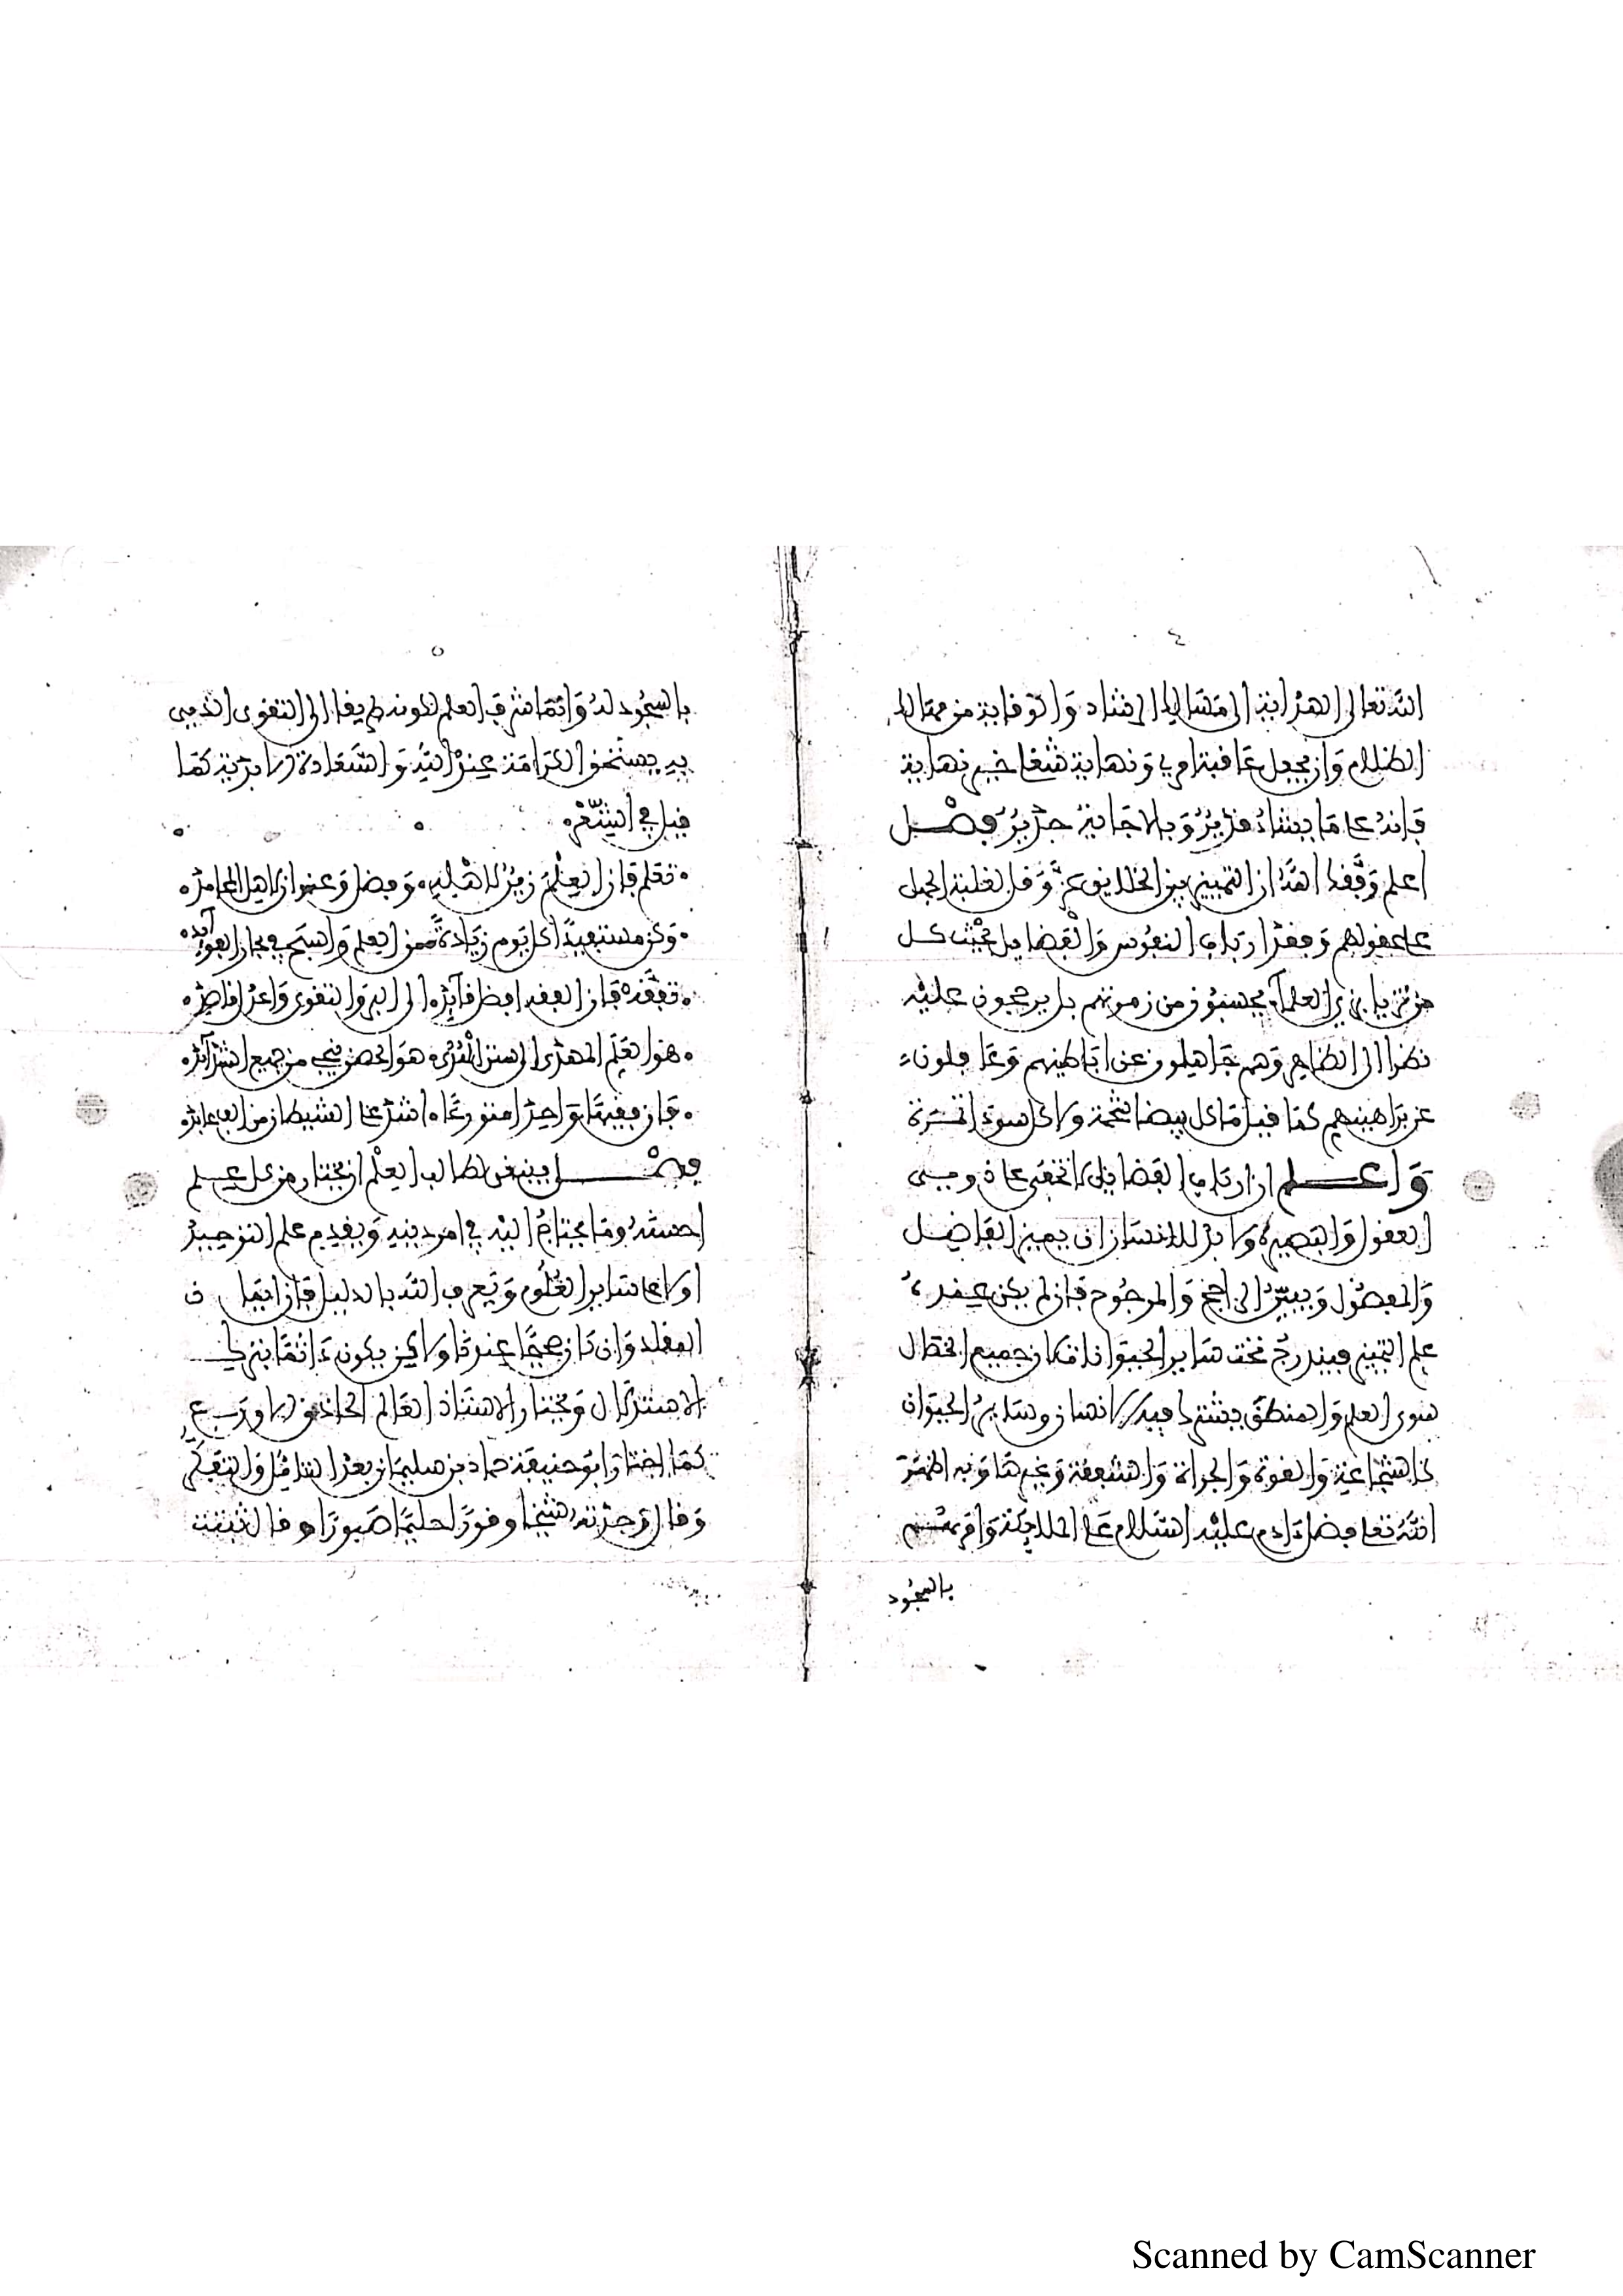 ٤
الله تعالى الهداية إلى مسالك الرشاد والوقاية من مهالك
الظلام وان يجعل عاقبة امري ونهاية شغلي خير نهاية
فانه على ما يشاء قدير وبالاجابة جدير فصل
اعلم وفقك الله ان التمييز بين الخلايق عز وقل لغلبة الجهل
على عقولهم وفقد ارباب النفوس والفضايل بحيث كل
من تزيا بزي العلماء يحسبون من زمرتهم بل يرجحون عليه
نظرا الى الظاهر وهم جاهلون عن اباطنهم وغافلون
عن براهينهم كما قيل ما كل بيضا شحمة ولا كل سودا تمرة
واعلم ان ارباب الفضايل لا تخفى على ذوي
العقول والبصيرة ولا بد للانسان ان يميز الفاضل
والمفضول ويبين الراجح والمرجوح فان لم يكن عنده
علم التمييز فيندرج تحت ساير الحيوانات كان جميع الخصال
سوى العلم والمنطق يشترك فيه الانسان وساير الحيوان
كالشجاعة والقوة والجراة والشفقة وغيرها وبه اظهر
الله تعالى فضل ءادم عليه السلام على الملايكة وامرهم
بالسجود
٥
بالسجود له وانما شرف العلم لكونه طريقا الى التقوى الذي
به يستحق الكرامة عند الله والسعادة الابدية كما
قيل في الشعر
تعلم فان العلم زين لاهله وفضل وعنوان لاهل المحامد
وكن مستفيدا كل يوم زيادة من العلم واسبح في بحار الفوايد
تفقه فان الفقه افضل قايد الى البر والتقوى واعدل قاصد
هو العلم الهادي الى سنن الهدى هو الحصن ينجي من جميع الشدايد
فان فقيها واحدا متورعا اشد على الشيطان من الف عابد
فصل ينبغي لطالب العلم ان يختار من كل علم
احسنه وما يحتاج اليه في امر دينه ويقدم علم التوحيد
اولا على ساير العلوم ويعرف الله بالدليل فان ايمان
المقلد وان كان صحيحا عندنا ولاكن يكون ءاثما بترك
الاستدلال ويختار الاستاذ العالم الحاذق الاورع
كما اختار ابو حنيفة حماد بن سليمان بعد التامل والتفكر
وقال وجدته شيخا وقورا حليما صبورا وقال ثبتت
Scanned by CamScanner